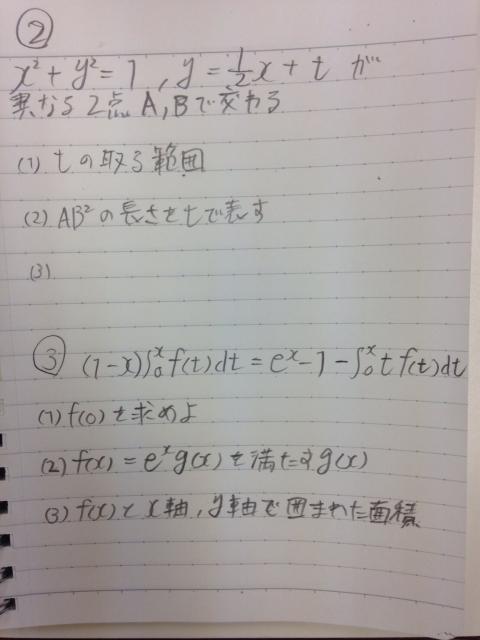 ②
x² + y² = 1 , y = 1/2 x + t が
異なる2点A,Bで交わる
(1) tの取る範囲
(2) AB²の長さをtで表す
(3)
③ (1-x)∫₀ˣ f(t)dt = eˣ - 1 - ∫₀ˣ t f(t)dt
(1) f(0)を求めよ
(2) f(x) = eˣg(x)を満たすg(x)
(3) f(x)とx軸,y軸で囲まれた面積